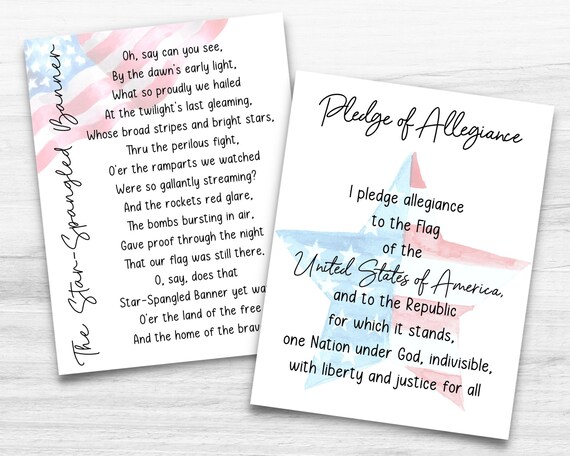 The Star-Spangled Banner
Oh, say can you see,
By the dawn's early light,
What so proudly we hailed
At the twilight's last gleaming,
Whose broad stripes and bright stars,
Thru the perilous fight,
O'er the ramparts we watched
Were so gallantly streaming?
And the rockets red glare,
The bombs bursting in air,
Gave proof through the night
That our flag was still there.
O, say, does that
Star-Spangled Banner yet wa
O'er the land of the free
And the home of the brav
Pledge of Allegiance
I pledge allegiance
to the Flag
of the
United States of America,
and to the Republic
for which it stands,
one Nation under God, indivisible,
with liberty and justice for all